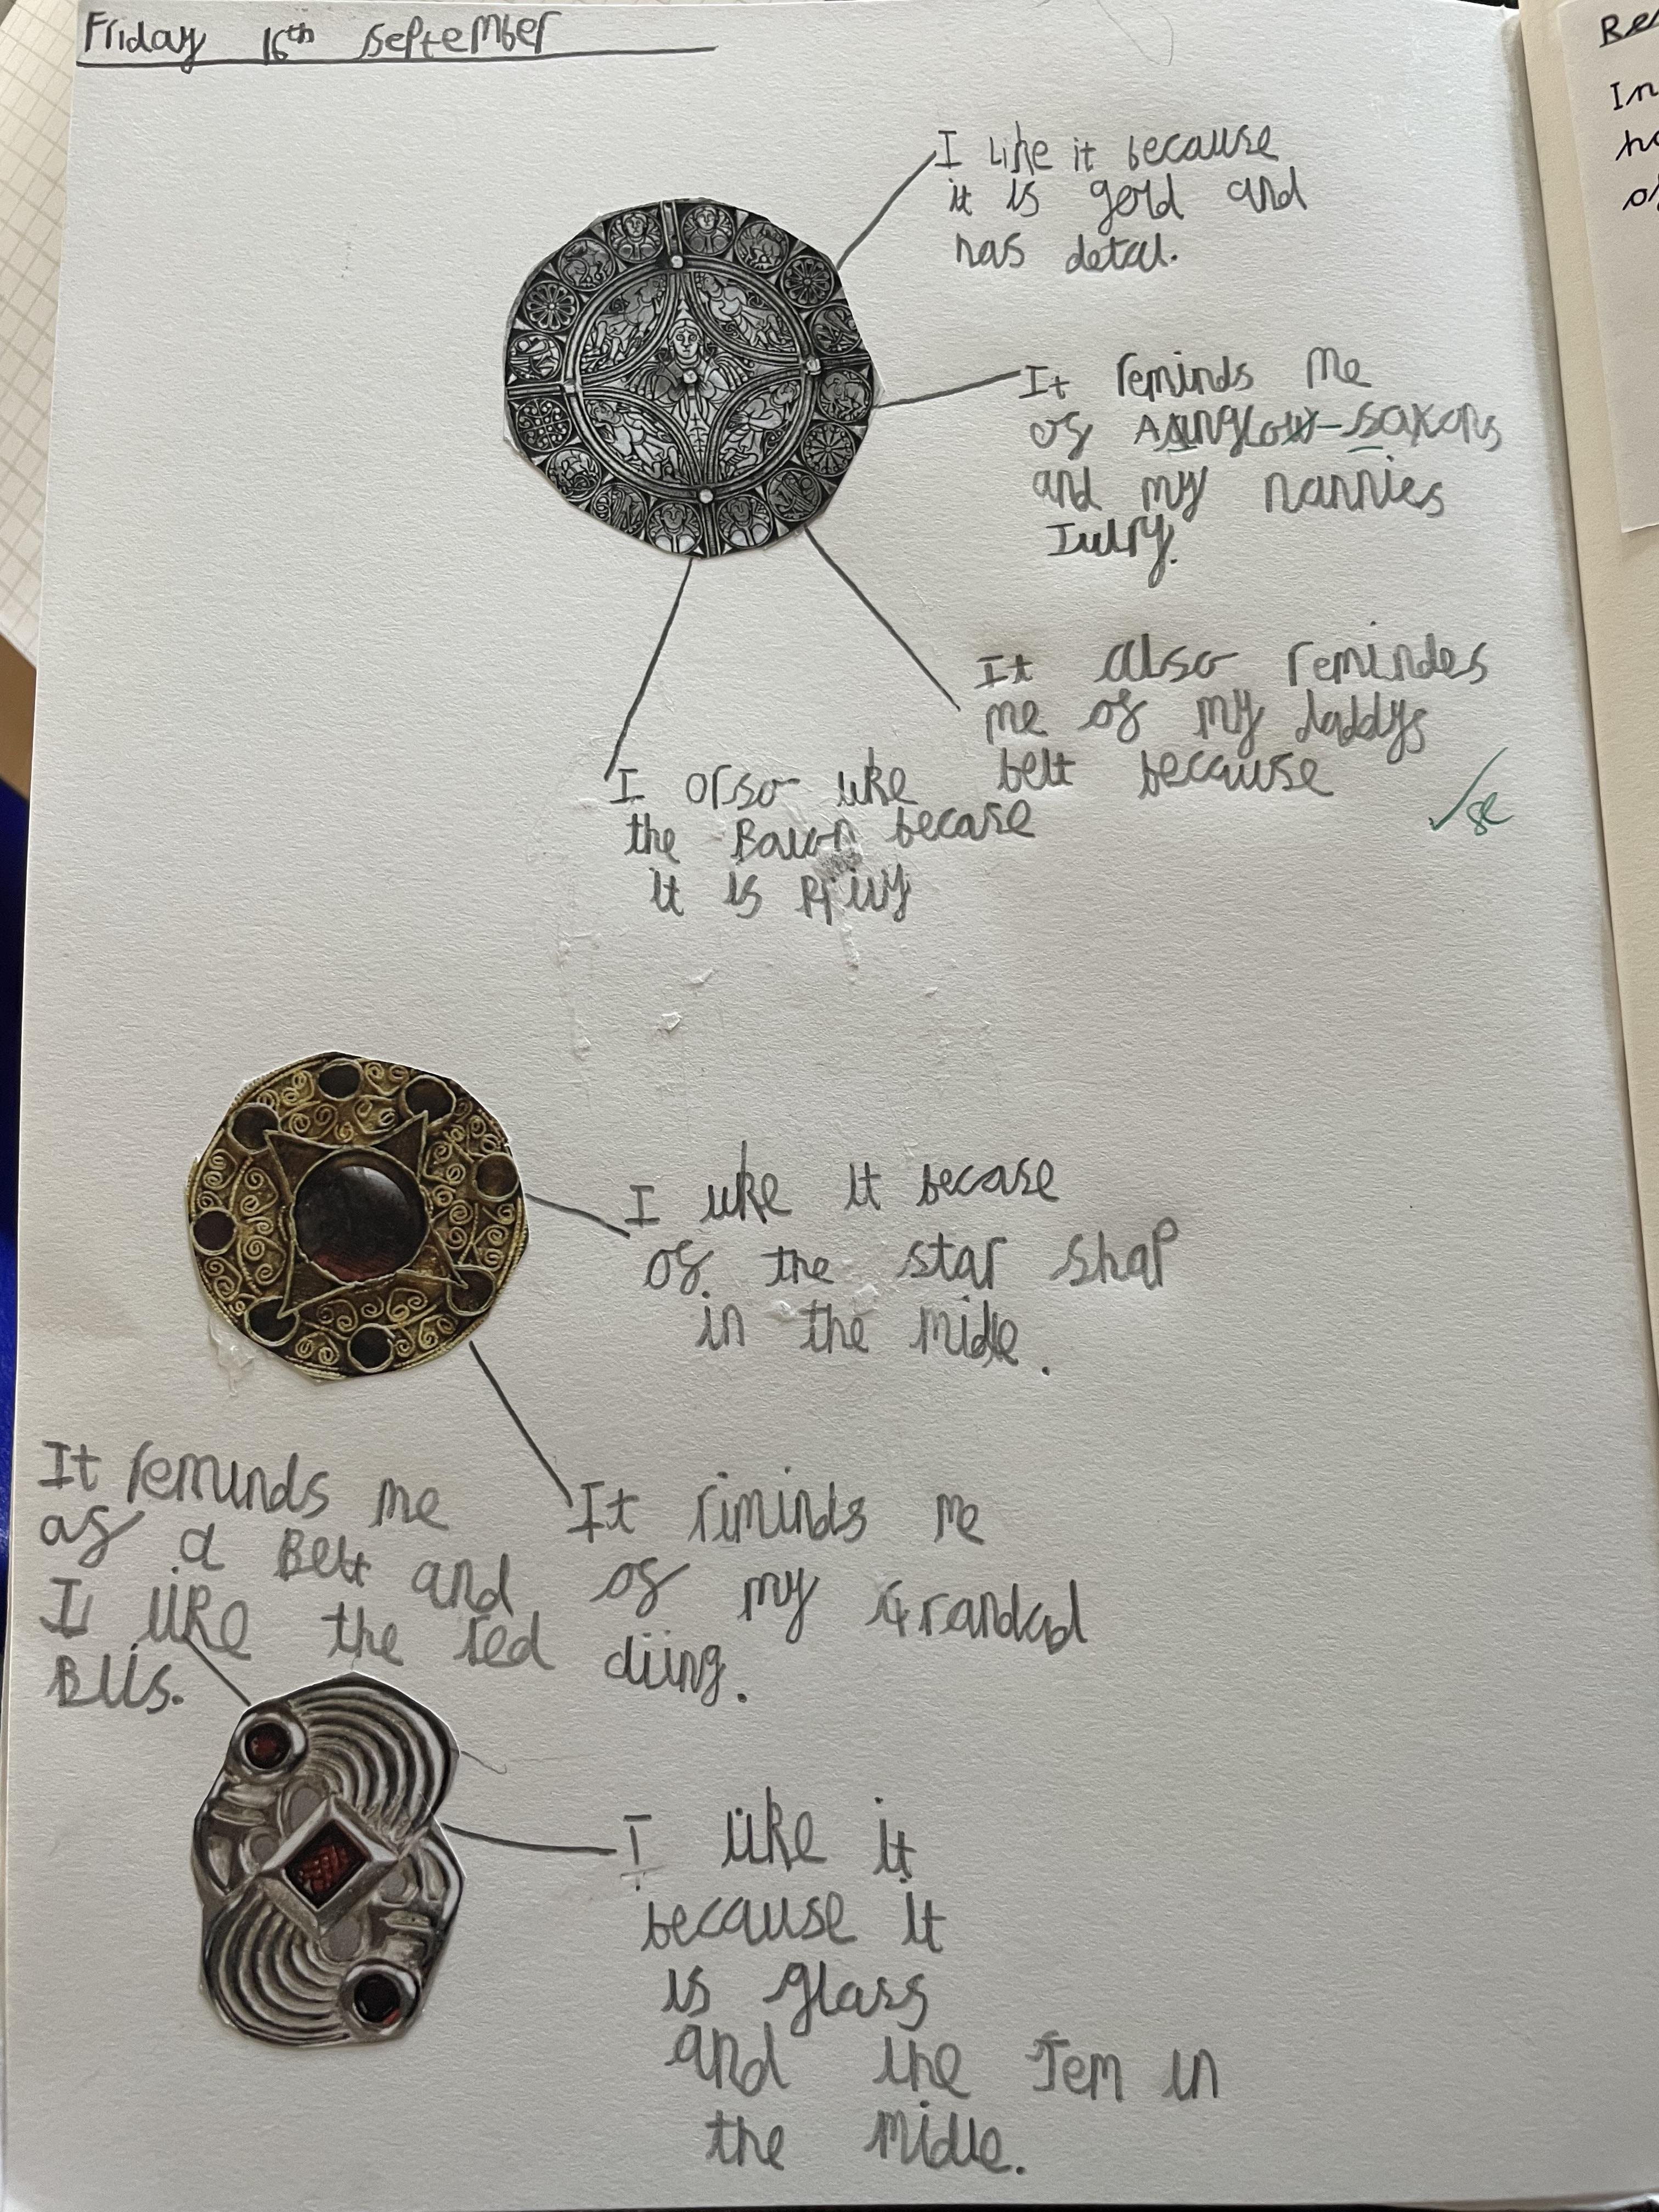 Friday 16th September
I like it because
it is gold and
has detal.
It reminds me
of Anglo-saxons
and my nannies
Iulry.
It also remindes
me of my daddys
belt because
I orso like
the because
it is
I like it becase
of the star shap
in the midle.
It riminds me
of my Grandad
diing.
It reminds me
of a Belt and
I like the red
Blls.
I like it
because it
is glass
and the Jem in
the midle.
Re
In
ha
of